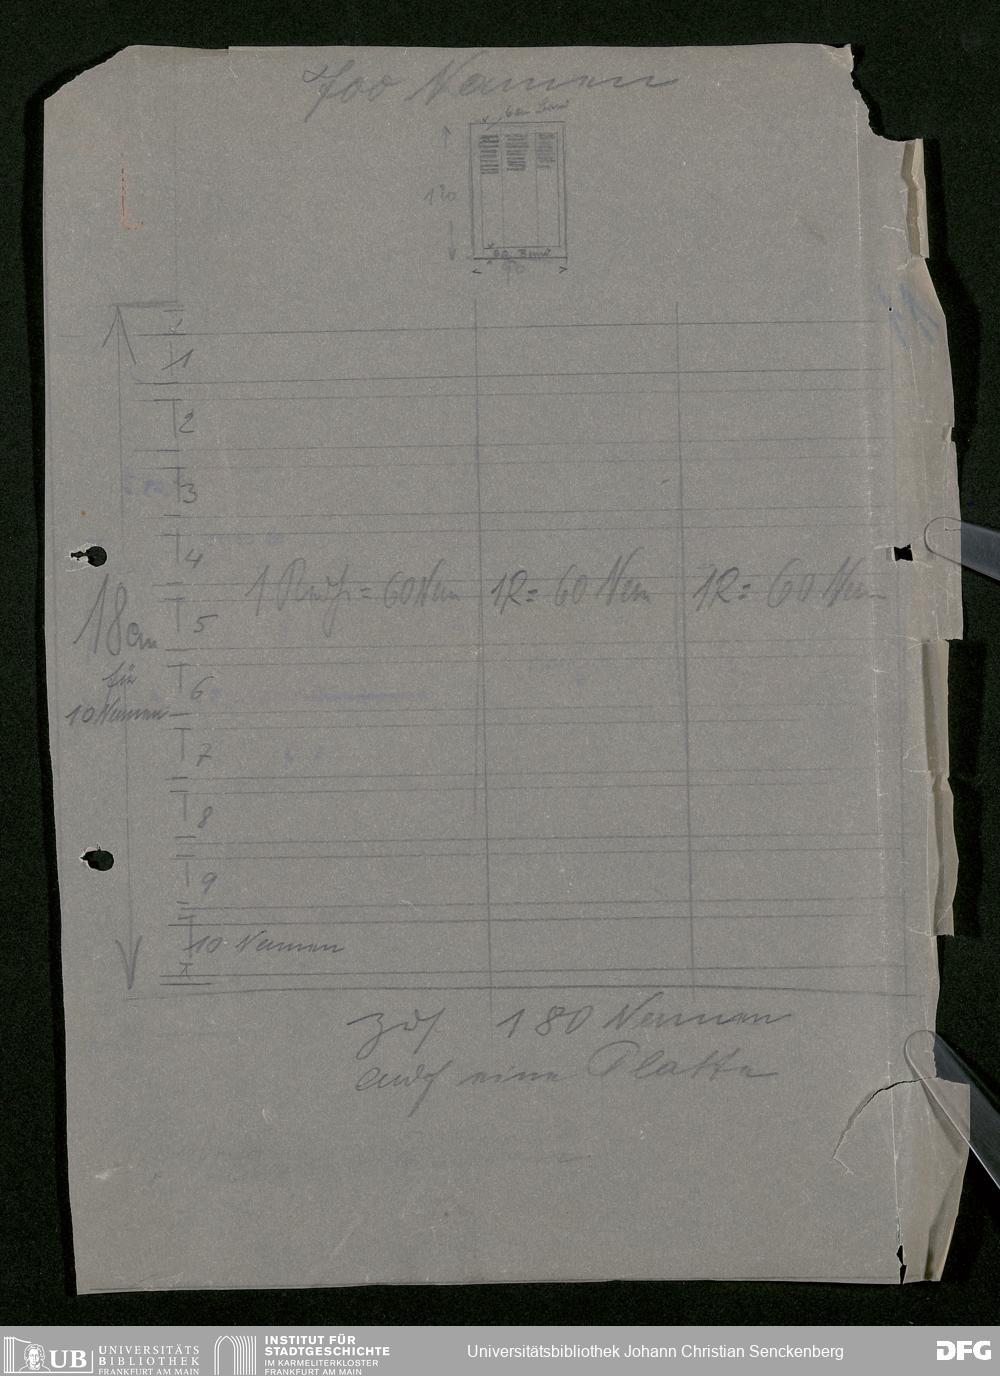 700 Namen
6 cm Rand
120
6 cm Rand
90
1
2
3
4
1 Reihe = 60 Nam
1R = 60 Nam
1R = 60 Nam
5
18 cm
für
10 Namen
6
7
8
9
10 Namen
180 Namen
auf eine Platte
UB UNIVERSITÄTS
BIBLIOTHEK
FRANKFURT AM MAIN
INSTITUT FÜR
STADTGESCHICHTE
IM KARMELITERKLOSTER
FRANKFURT AM MAIN
Universitätsbibliothek Johann Christian Senckenberg
DFG